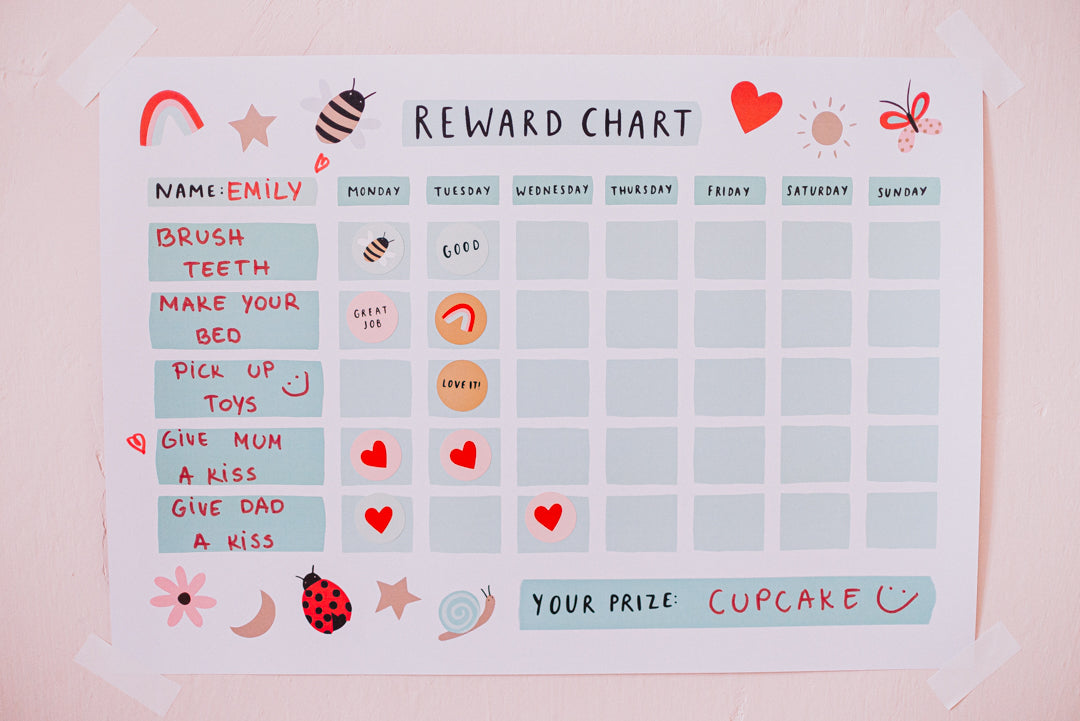 REWARD CHART
NAME: EMILY
MONDAY
TUESDAY
WEDNESDAY
THURSDAY
FRIDAY
SATURDAY
SUNDAY
BRUSH
TEETH
GOOD
MAKE YOUR
BED
GREAT
JOB
PICK UP
TOYS
LOVE IT!
GIVE MUM
A KISS
GIVE DAD
A KISS
YOUR PRIZE: CUPCAKE